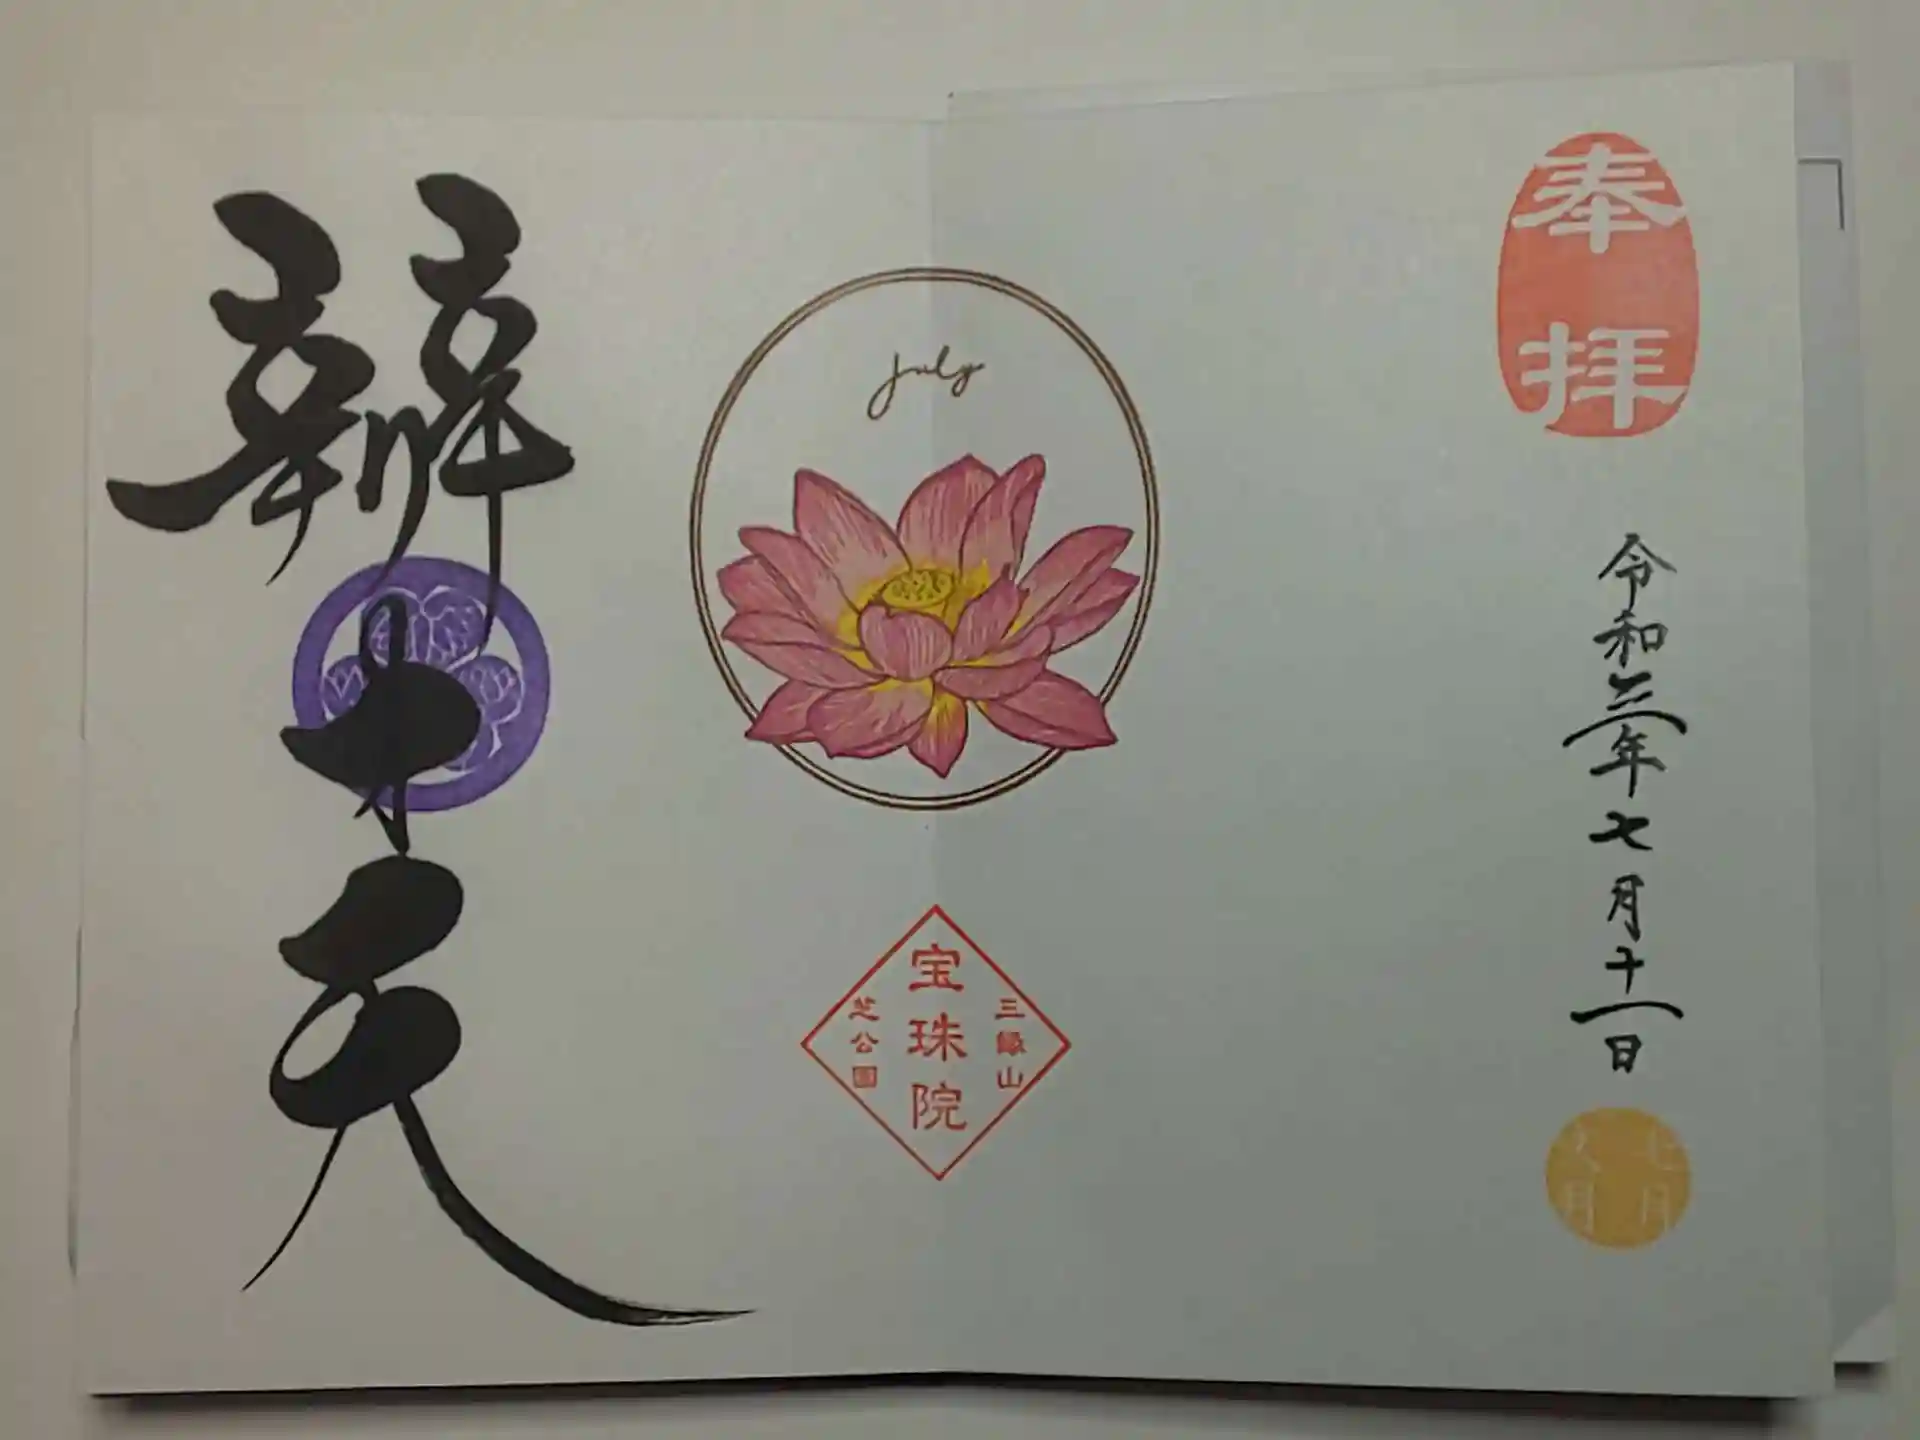 奉拝
令和三年七月十一日
七月
文月
July
三縁山
宝珠院
芝公園
辨才天